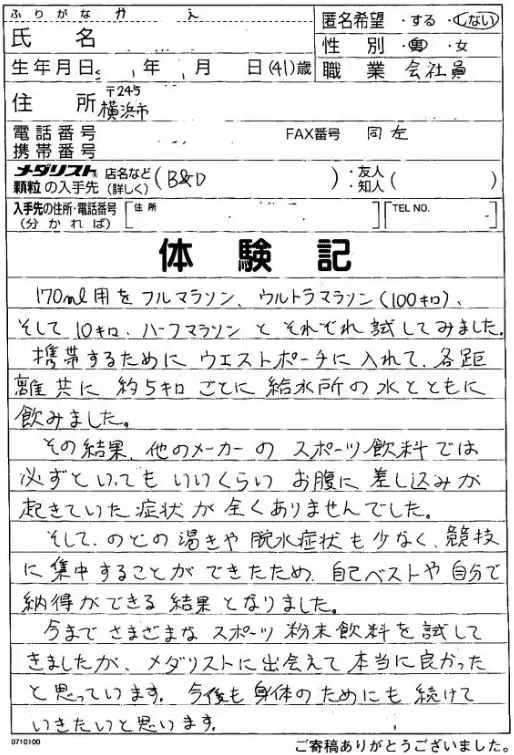 ふりがな か え
匿名希望 ・する ・しない
氏 名
性 別 ・男 ・女
生年月日 年 月 日(41)歳
職 業 会社員
住 所 〒245
横浜市
電話番号 FAX番号 同左
携帯番号
メダリスト 店名など
顆粒の入手先(詳しく) ( B&D ) ・友人
・知人 ( )
入手先の住所・電話番号
(分かれば)
[住所 ] [TEL NO. ]
体験記
170ml用をフルマラソン、ウルトラマラソン(100キロ)、
そして10キロ、ハーフマラソンとそれぞれ試してみました。
携帯するためにウエストポーチに入れて、各距
離共に約5キロごとに給水所の水とともに
飲みました。
その結果、他のメーカーのスポーツ飲料では
必ずといってもいいくらいお腹に差し込みが
起きていた症状が全くありませんでした。
そして、のどの渇きや脱水症状も少なく、競技
に集中することができたため、自己ベストや自分で
納得ができる結果となりました。
今までさまざまなスポーツ粉末飲料を試して
きましたが、メダリストに出会えて本当に良かった
と思っています。今後も身体のためにも続けて
いきたいと思います。
0710100
ご寄稿ありがとうございました。